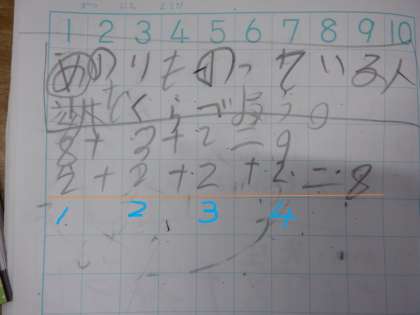 1 2 3 4 5 6 7 8 9 10
めのりものっている人
くらべよう。
+ 3 + 2 = 9
2 + 2 + 2 + 2 = 8
1 2 3 4